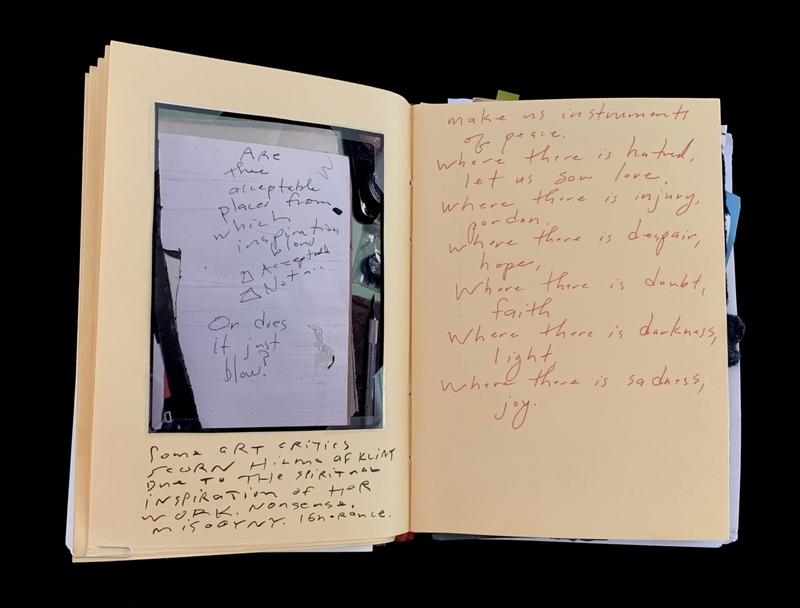 Are
there
acceptable
places from
which
inspiration
blow
Accepted
Not
Or does
it just
blow?
Some art critics
scurn Hilma af Klint
Due to the spiritual
inspiration of her
work. Nonsense.
Misogyny. Ignorance.
make us instruments
of peace.
Where there is hatred,
let us sow love,
Where there is injury,
pardon.
Where there is despair,
hope,
Where there is doubt,
faith
Where there is darkness,
light,
Where there is sadness,
joy.